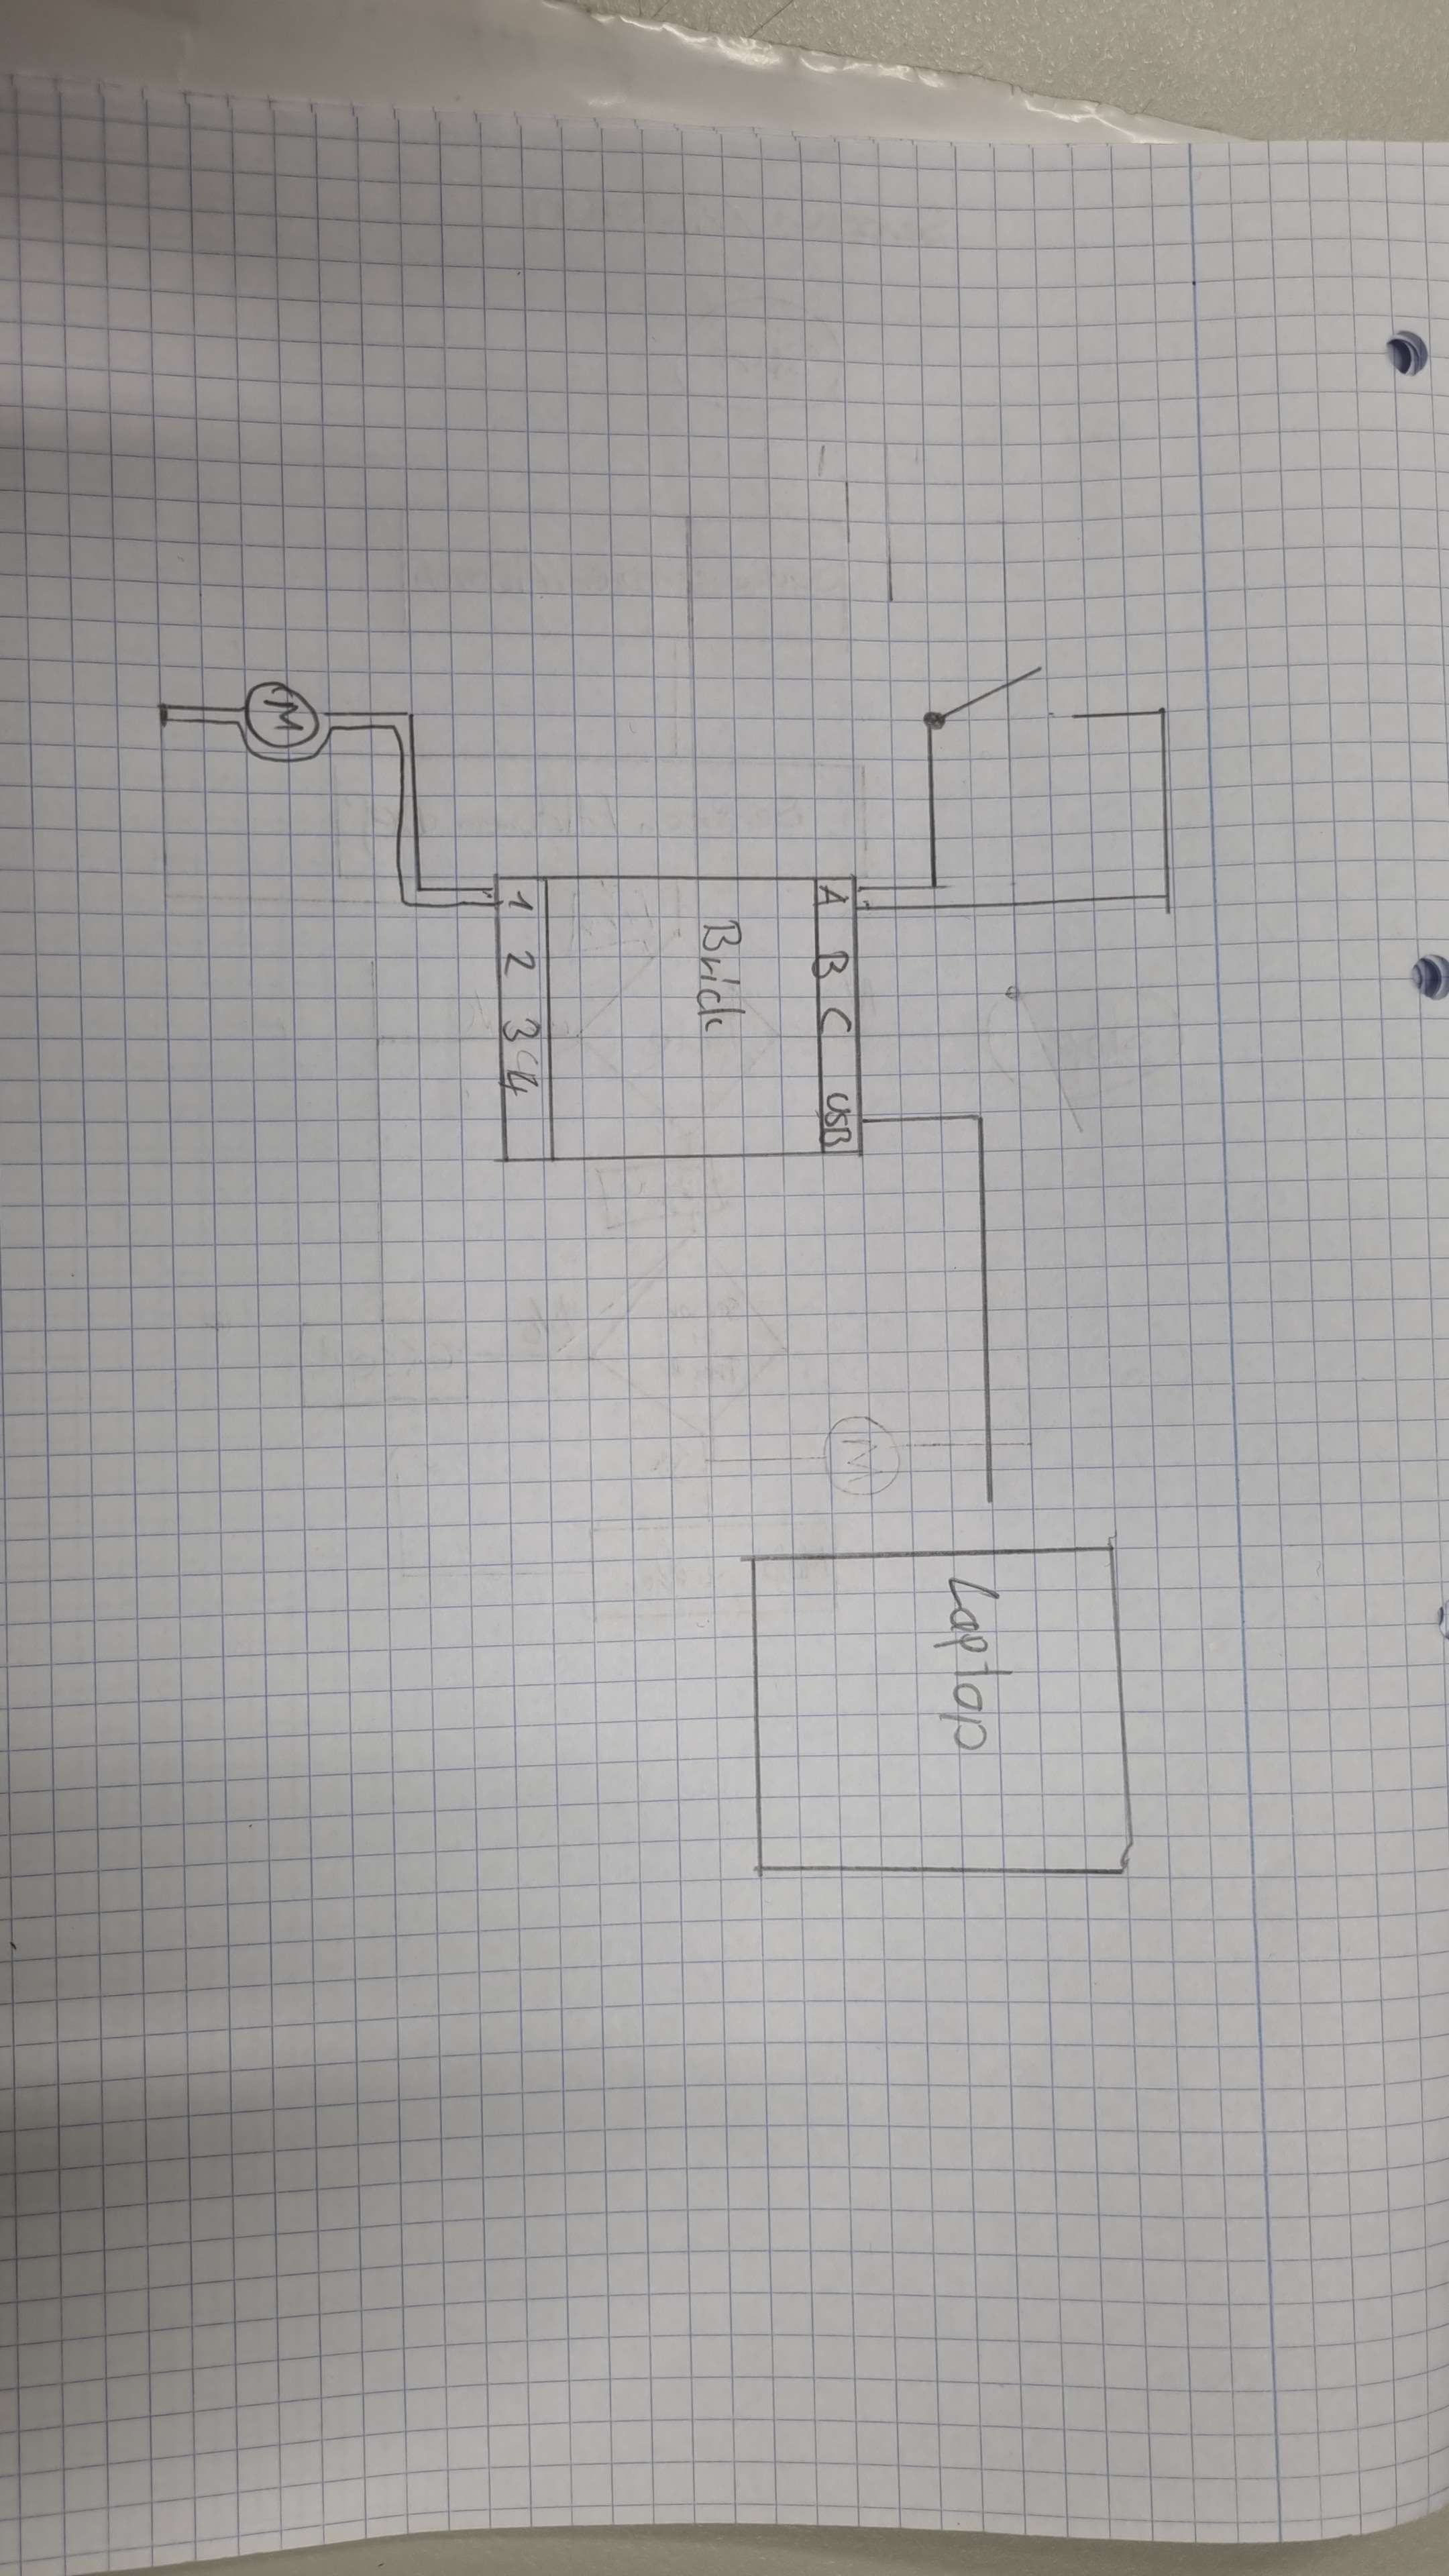 A B C USB
Brick
1 2 3 4
M
Laptop
M